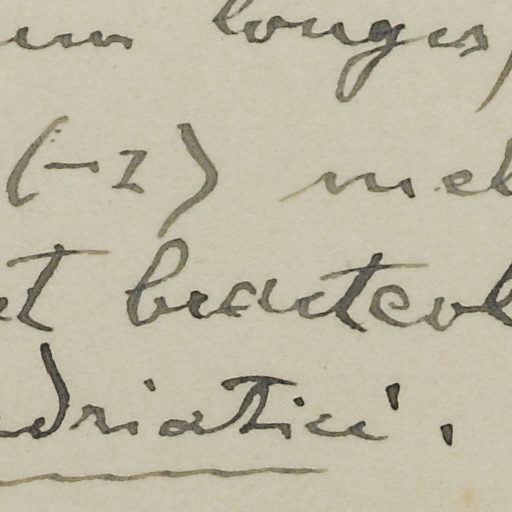 um longis,
(-2) mel
et bracteol
adriatici.